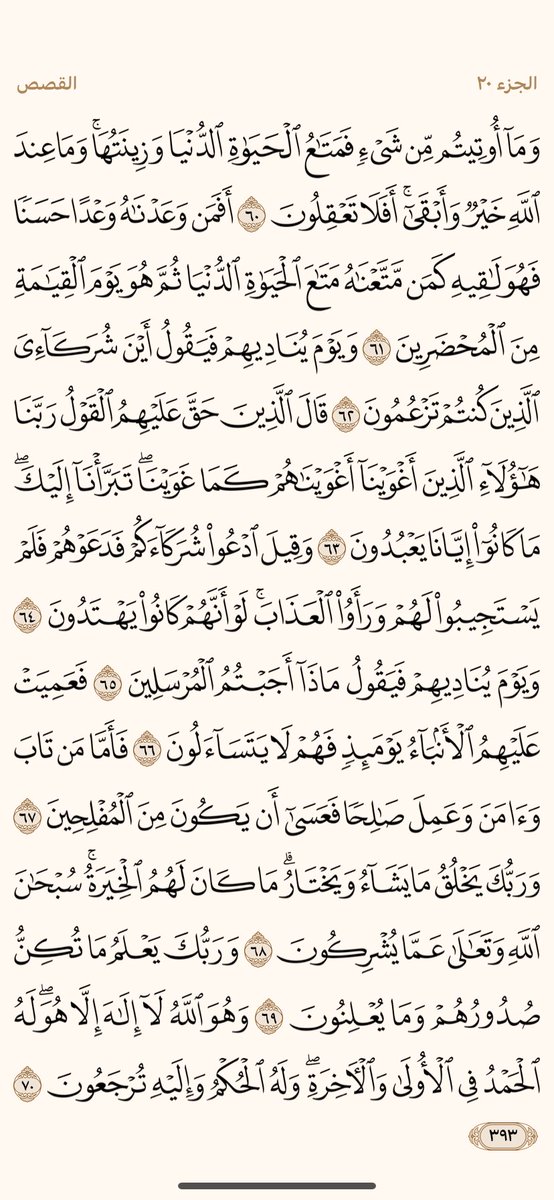 الجزء ٢٠
القصص
وَمَآ أُوتِيتُم مِّن شَىْءٍ فَمَتَٰعُ ٱلْحَيَوٰةِ ٱلدُّنْيَا وَزِينَتُهَا ۚ وَمَا عِندَ
ٱللَّهِ خَيْرٌ وَأَبْقَىٰٓ ۚ أَفَلَا تَعْقِلُونَ ٦٠ أَفَمَن وَعَدْنَٰهُ وَعْدًا حَسَنًا
فَهُوَ لَٰقِيهِ كَمَن مَّتَّعْنَٰهُ مَتَٰعَ ٱلْحَيَوٰةِ ٱلدُّنْيَا ثُمَّ هُوَ يَوْمَ ٱلْقِيَٰمَةِ
مِنَ ٱلْمُحْضَرِينَ ٦١ وَيَوْمَ يُنَادِيهِمْ فَيَقُولُ أَيْنَ شُرَكَآءِىَ
ٱلَّذِينَ كُنتُمْ تَزْعُمُونَ ٦٢ قَالَ ٱلَّذِينَ حَقَّ عَلَيْهِمُ ٱلْقَوْلُ رَبَّنَا
هَٰٓؤُلَآءِ ٱلَّذِينَ أَغْوَيْنَآ أَغْوَيْنَٰهُمْ كَمَا غَوَيْنَا ۖ تَبَرَّأْنَآ إِلَيْكَ ۖ
مَا كَانُوٓا۟ إِيَّانَا يَعْبُدُونَ ٦٣ وَقِيلَ ٱدْعُوا۟ شُرَكَآءَكُمْ فَدَعَوْهُمْ فَلَمْ
يَسْتَجِيبُوا۟ لَهُمْ وَرَأَوُا۟ ٱلْعَذَابَ ۚ لَوْ أَنَّهُمْ كَانُوا۟ يَهْتَدُونَ ٦٤
وَيَوْمَ يُنَادِيهِمْ فَيَقُولُ مَاذَآ أَجَبْتُمُ ٱلْمُرْسَلِينَ ٦٥ فَعَمِيَتْ
عَلَيْهِمُ ٱلْأَنۢبَآءُ يَوْمَئِذٍ فَهُمْ لَا يَتَسَآءَلُونَ ٦٦ فَأَمَّا مَن تَابَ
وَءَامَنَ وَعَمِلَ صَٰلِحًا فَعَسَىٰٓ أَن يَكُونَ مِنَ ٱلْمُفْلِحِينَ ٦٧
وَرَبُّكَ يَخْلُقُ مَا يَشَآءُ وَيَخْتَارُ ۗ مَا كَانَ لَهُمُ ٱلْخِيَرَةُ ۚ سُبْحَٰنَ
ٱللَّهِ وَتَعَٰلَىٰ عَمَّا يُشْرِكُونَ ٦٨ وَرَبُّكَ يَعْلَمُ مَا تُكِنُّ
صُدُورُهُمْ وَمَا يُعْلِنُونَ ٦٩ وَهُوَ ٱللَّهُ لَآ إِلَٰهَ إِلَّا هُوَ ۖ لَهُ
ٱلْحَمْدُ فِى ٱلْأُولَىٰ وَٱلْءَاخِرَةِ ۖ وَلَهُ ٱلْحُكْمُ وَإِلَيْهِ تُرْجَعُونَ ٧٠
٣٩٣